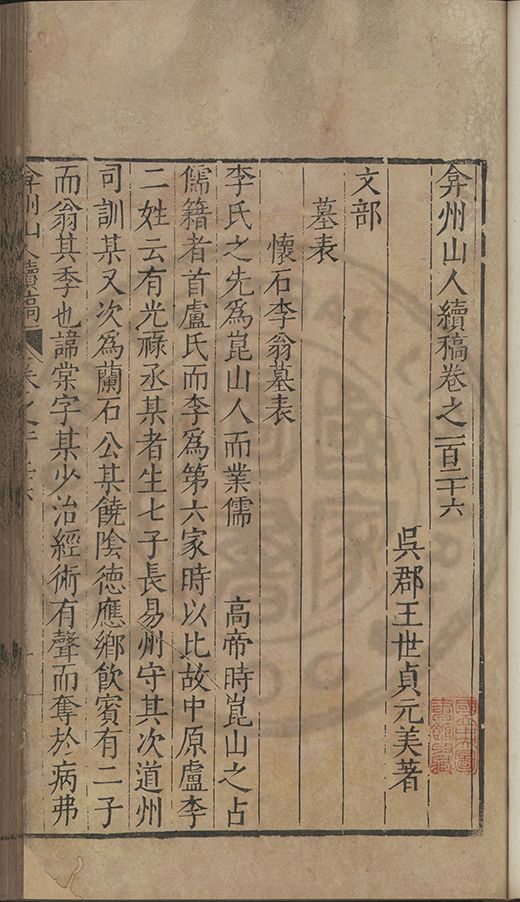 弇州山人續稿卷之一百二十六
吳郡王世貞元美著
文部
墓表
懷石李翁墓表
李氏之先為崑山人而業儒　高帝時崑山之占
儒籍者首盧氏而李為第六家時以比故中原盧李
二姓云有光祿丞某者生七子長易州守其次道州
司訓某又次為蘭石公某饒陰徳應鄉飲賓有二子
而翁其季也諱棠字某少治經術有聲而奪於病弗
弇州山人續稿